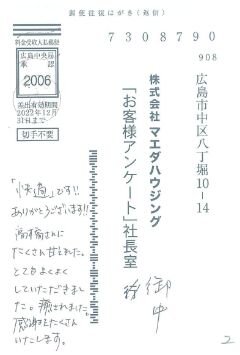 郵便往復はがき(返信)
料金受取人払郵便
広島中央局
承認
2006
差出有効期間
2022年12月
31日まで
切手不要
7308790
908
広島市中区八丁堀10-14
株式会社 マエダハウジング
「お客様アンケート」社長室 行
御中
「快適」です!!
ありがとうございます!!
たくさん甘えました。
とてもよくよく
していただきまし
た。癒されました。
感謝をたくさん
いたします。
2